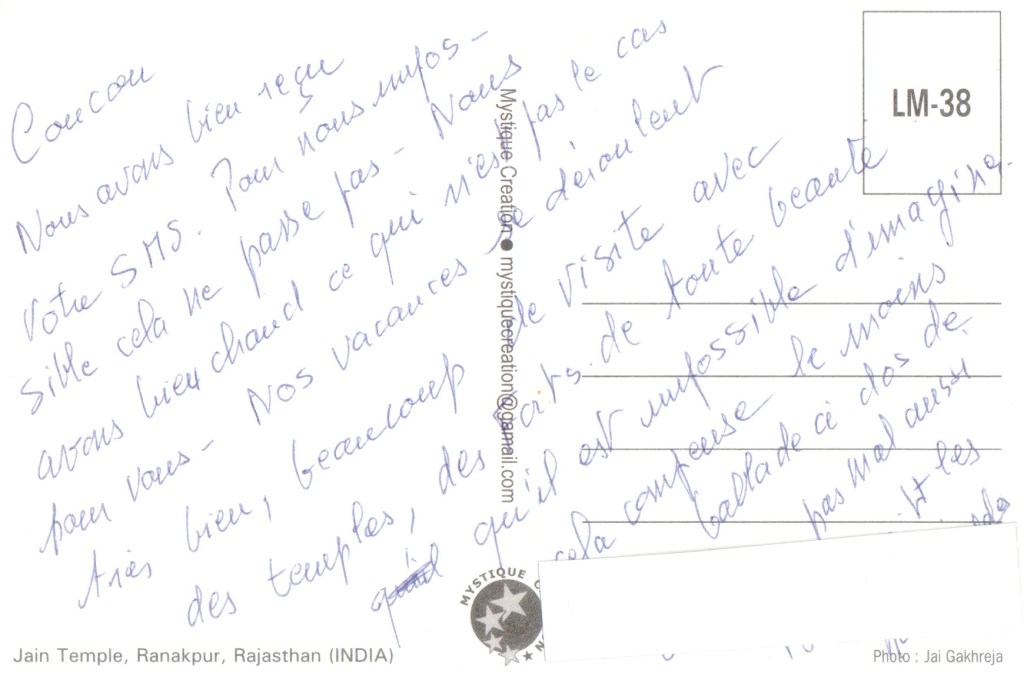 Coucou
Nous avons bien reçu
votre SMS. Pour nous impos-
sible cela ne passe pas - Nous
avons bien chaud ce qui n'est pas le cas
pour vous - Nos vacances se déroulent
très bien, beaucoup de visite avec
des temples, des forts de toute beauté
qu'il est impossible d'imaginer.
cela compense le moins
ballade ci dos de
pas mal aussi
les
LM-38
Mystique Creation ● mystiquecreation@gamail.com
MYSTIQUE
Jain Temple, Ranakpur, Rajasthan (INDIA)
Photo : Jai Gakhreja